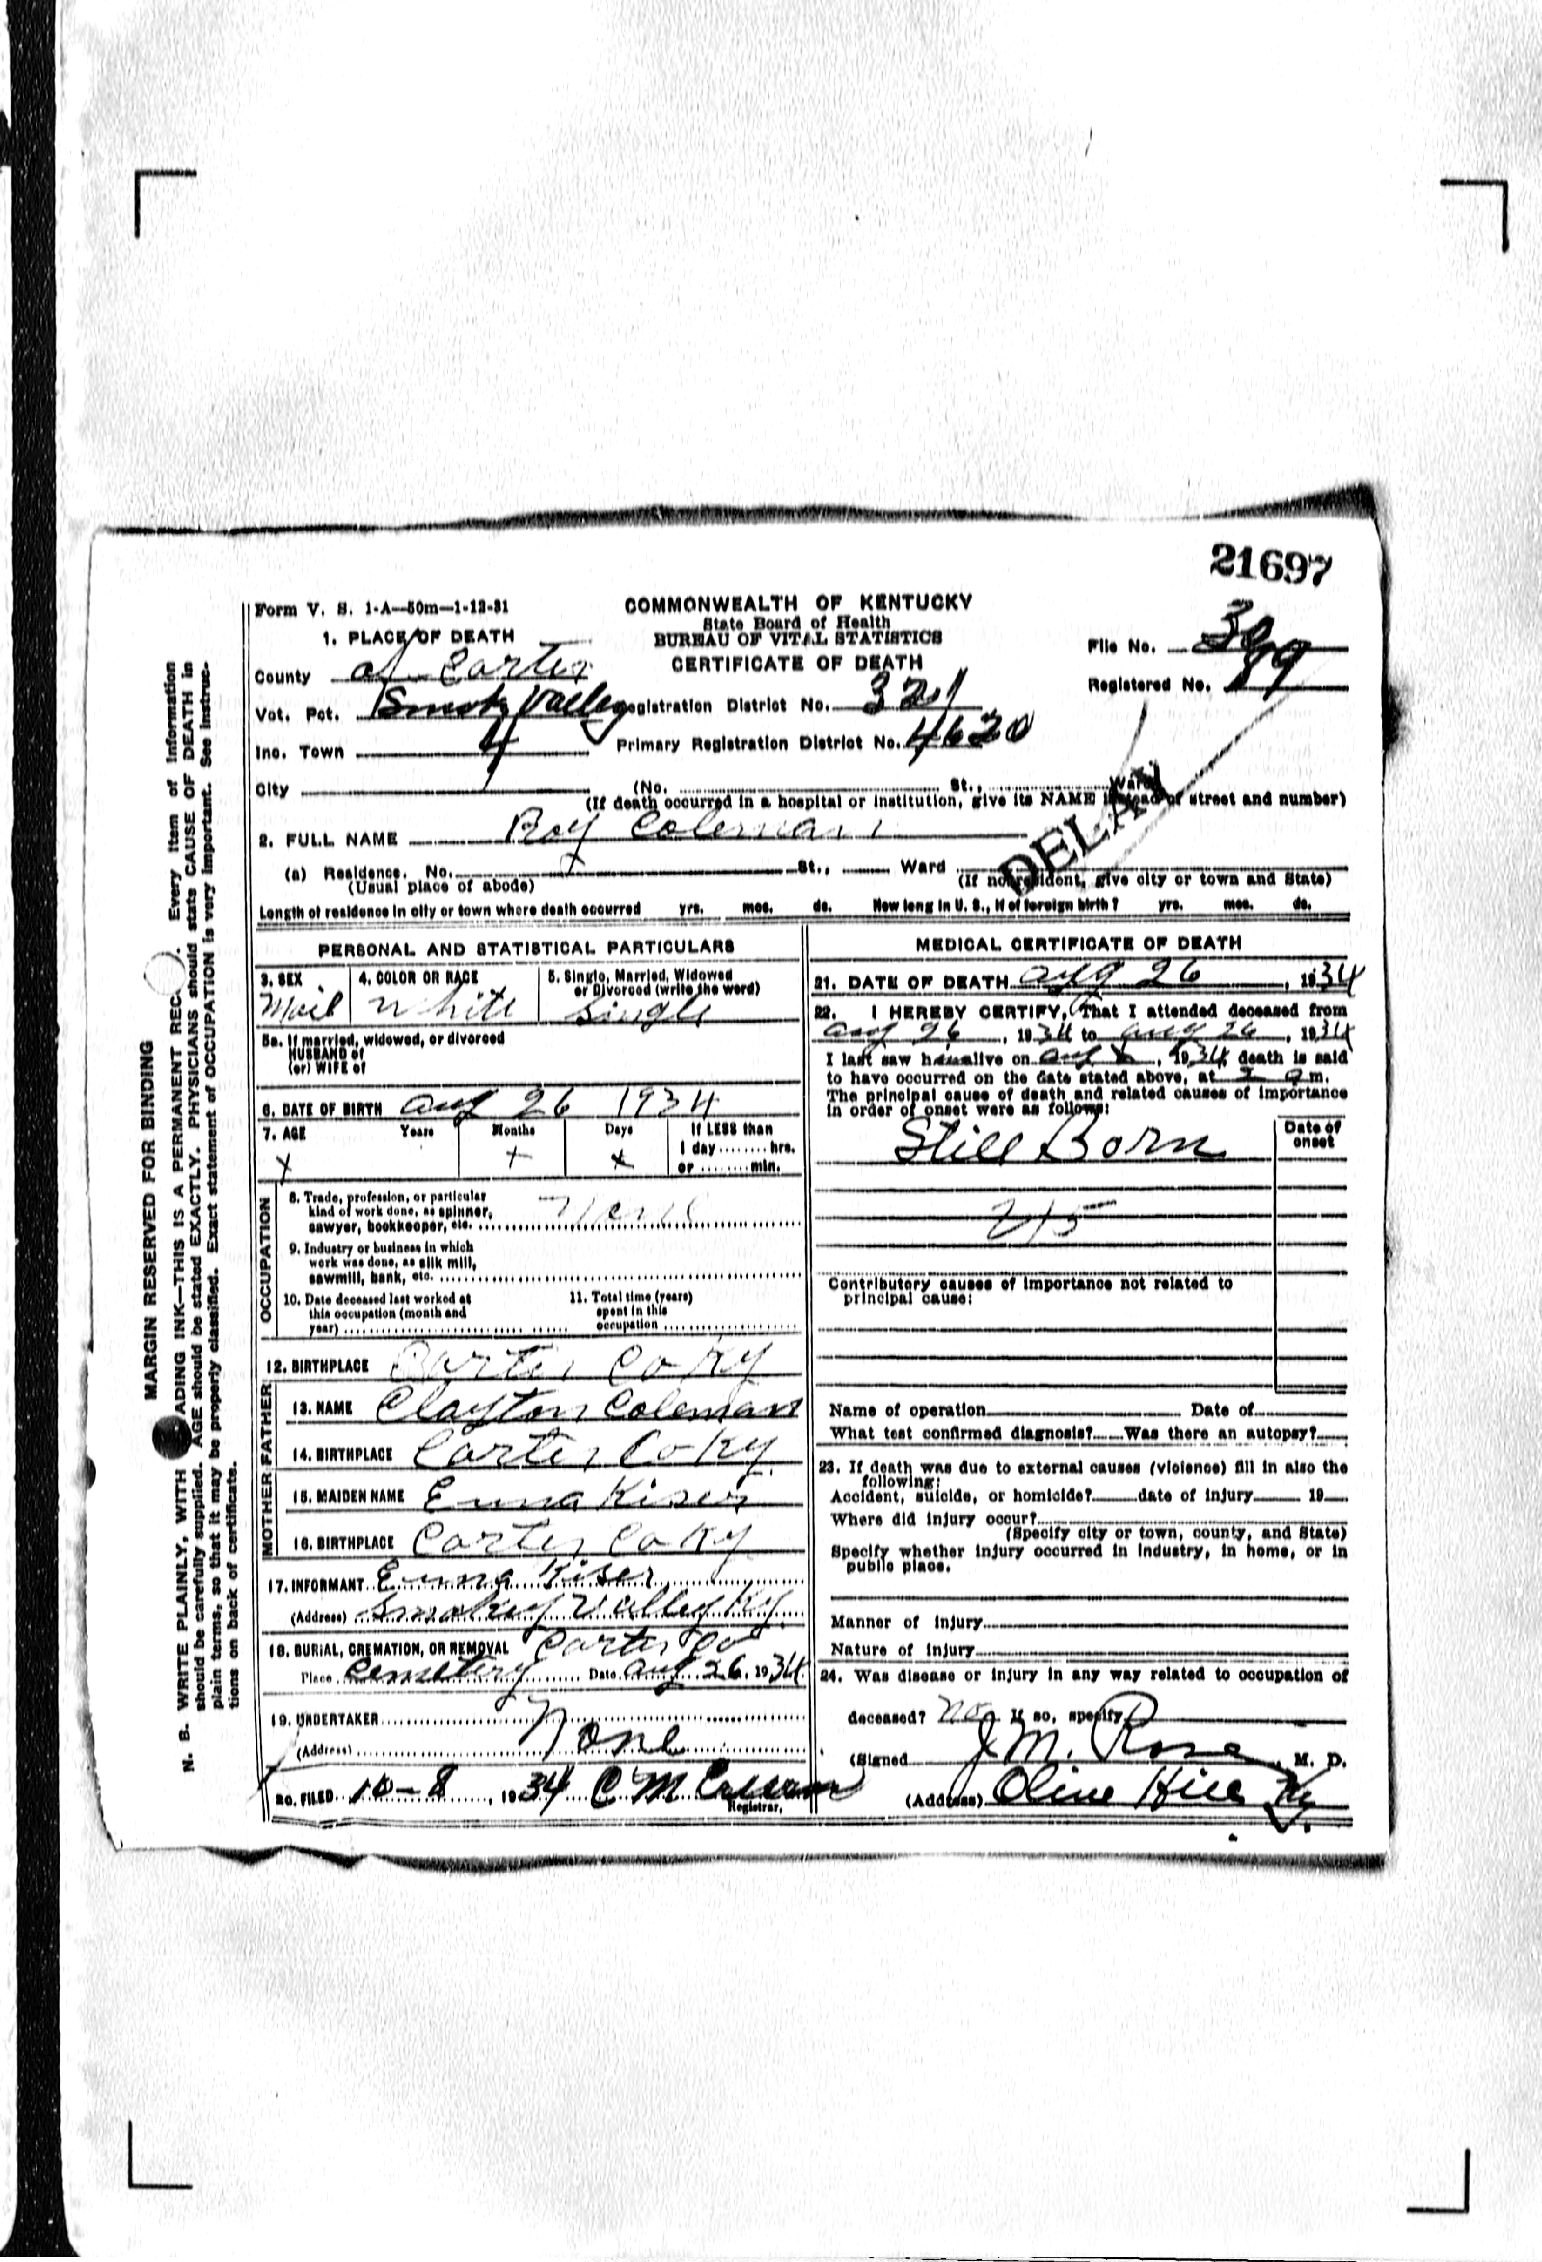 21697
Form V. S. 1-A—50m—1-12-31
COMMONWEALTH OF KENTUCKY
State Board of Health
BUREAU OF VITAL STATISTICS
CERTIFICATE OF DEATH
File No.
Registered No. 89
1. PLACE OF DEATH
County of Carter
Vot. Pct. Smoky Valley Registration District No. 321
Inc. Town Primary Registration District No. 4620
City (No. St., Ward)
(If death occurred in a hospital or institution, give its NAME instead of street and number)
DELAY
2. FULL NAME Boy Coleman
(a) Residence. No. St., Ward
(Usual place of abode) (If nonresident, give city or town and State)
Length of residence in city or town where death occurred yrs. mos. ds. How long in U. S., if of foreign birth? yrs. mos. ds.
PERSONAL AND STATISTICAL PARTICULARS
3. SEX 4. COLOR OR RACE 5. Single, Married, Widowed
or Divorced (write the word)
Mail White Single
5a. If married, widowed, or divorced
HUSBAND of
(or) WIFE of
6. DATE OF BIRTH Aug 26 1934
7. AGE Years Months Days If LESS than
1 day ........ hrs.
or ........ min.
x x x
OCCUPATION
8. Trade, profession, or particular
kind of work done, as spinner,
sawyer, bookkeeper, etc. None
9. Industry or business in which
work was done, as silk mill,
sawmill, bank, etc.
10. Date deceased last worked at
this occupation (month and
year)
11. Total time (years)
spent in this
occupation
12. BIRTHPLACE Carter Co Ky
FATHER
13. NAME Clayton Coleman
14. BIRTHPLACE Carter Co Ky
MOTHER
15. MAIDEN NAME Emma Kiser
16. BIRTHPLACE Carter Co Ky
17. INFORMANT Emma Kiser
(Address) Smokey Valley Ky.
18. BURIAL, CREMATION, OR REMOVAL Carter Co
Place Cemetery Date Aug 26, 1934
19. UNDERTAKER None
(Address)
20. FILED 10-8, 1934 C M
Registrar.
MEDICAL CERTIFICATE OF DEATH
21. DATE OF DEATH Aug 26, 1934
22. I HEREBY CERTIFY, That I attended deceased from
Aug 26, 1934 to Aug 26, 1934
I last saw him alive on Aug x, 1934 death is said
to have occurred on the date stated above, at a m.
The principal cause of death and related causes of importance
in order of onset were as follows:
Date of
onset
Still Born
215
Contributory causes of importance not related to
principal cause:
Name of operation Date of
What test confirmed diagnosis? Was there an autopsy?
23. If death was due to external causes (violence) fill in also the
following:
Accident, suicide, or homicide? date of injury 19
Where did injury occur?
(Specify city or town, county, and State)
Specify whether injury occurred in industry, in home, or in
public place.
Manner of injury
Nature of injury
24. Was disease or injury in any way related to occupation of
deceased? No If so, specify
(Signed J M. Rose, M. D.
(Address) Olive Hill Ky.
MARGIN RESERVED FOR BINDING
N. B. WRITE PLAINLY, WITH ADING INK—THIS IS A PERMANENT REC. Every item of information
should be carefully supplied. AGE should be stated EXACTLY. PHYSICIANS should state CAUSE OF DEATH in
plain terms, so that it may be properly classified. Exact statement of OCCUPATION is very important. See instruc-
tions on back of certificate.